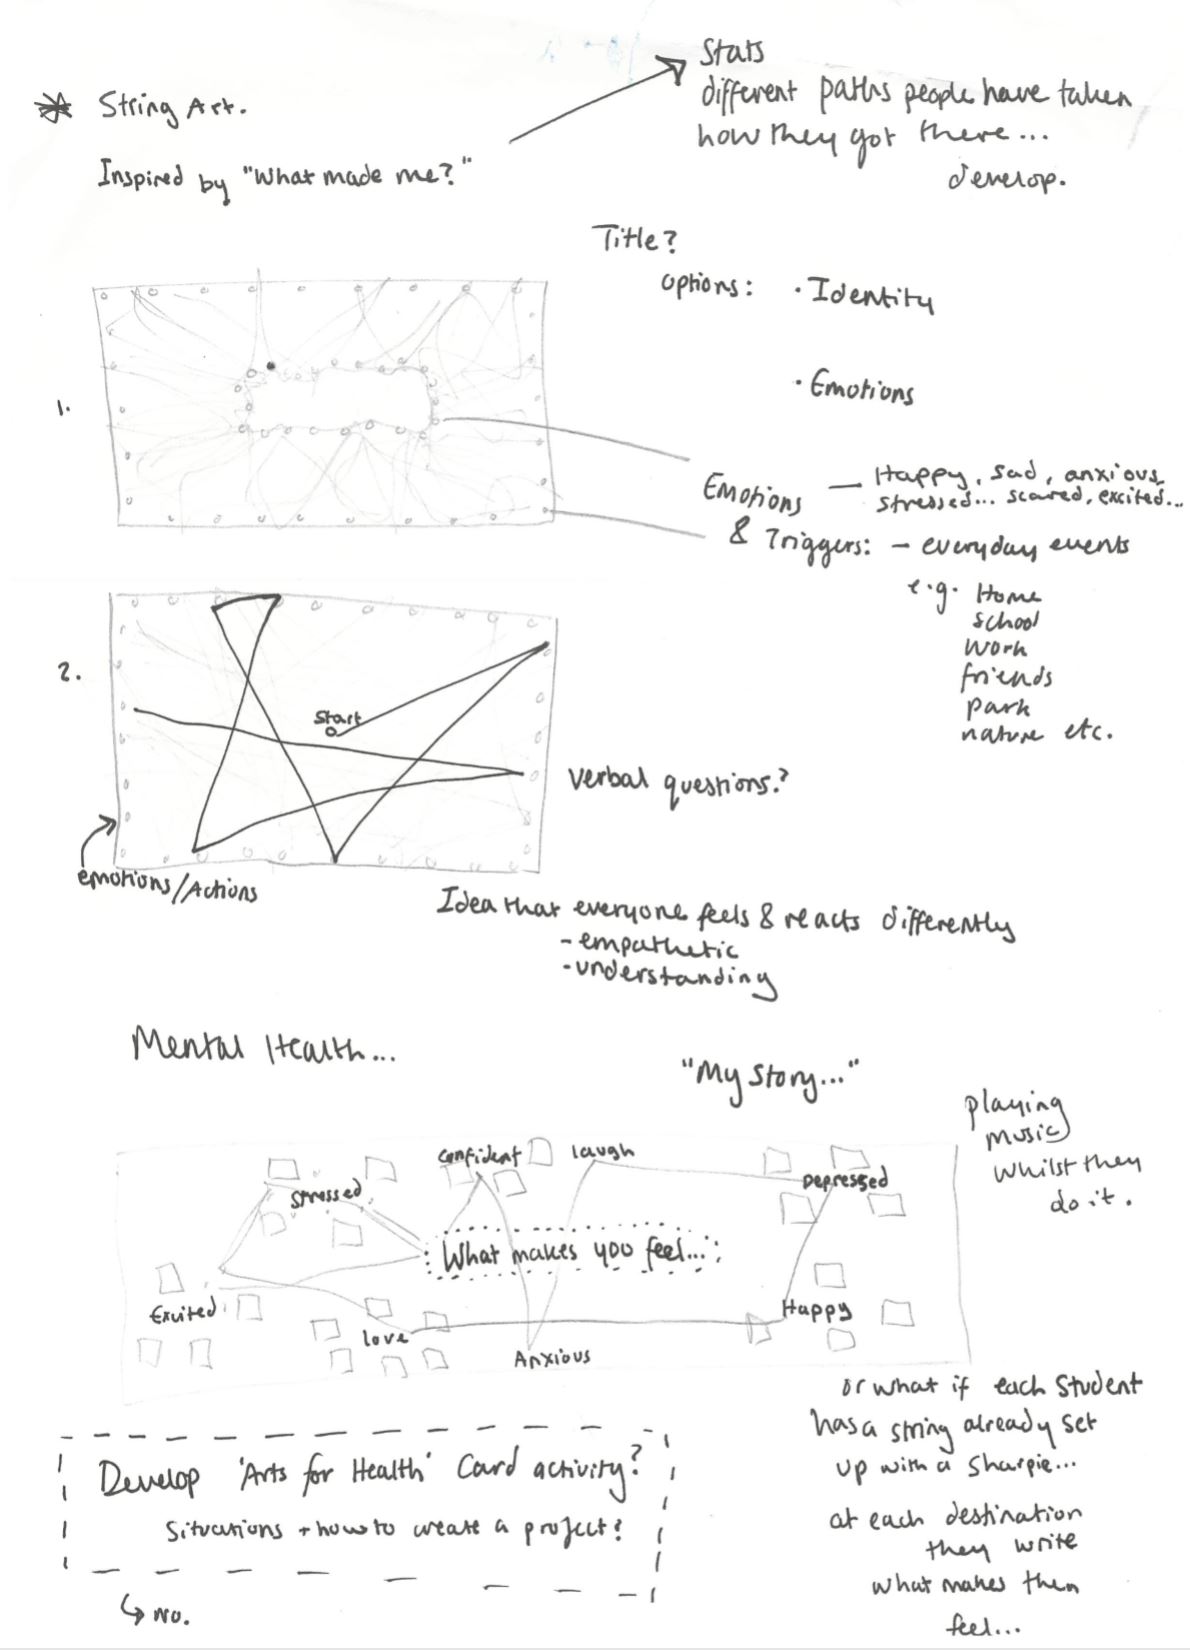 Stats
different paths people have taken
how they got there...
develop.
String Art.
Inspired by "What made me?"
Title?
options: · Identity
· Emotions
1.
Emotions — Happy, sad, anxious,
stressed... scared, excited...
& Triggers: - everyday events
e.g. Home
school
work
friends
park
nature etc.
2.
Start
verbal questions?
emotions/Actions
Idea that everyone feels & reacts differently
- empathetic
- understanding
Mental Health...
"My Story..."
playing
music
whilst they
do it.
Confident
laugh
Stressed
Depressed
What makes you feel...
Excited
love
Happy
Anxious
or what if each student
has a string already set
up with a sharpie...
at each destination
they write
what makes them
feel...
Develop 'Arts for Health' Card activity?
Situations + how to create a project?
↳ No.